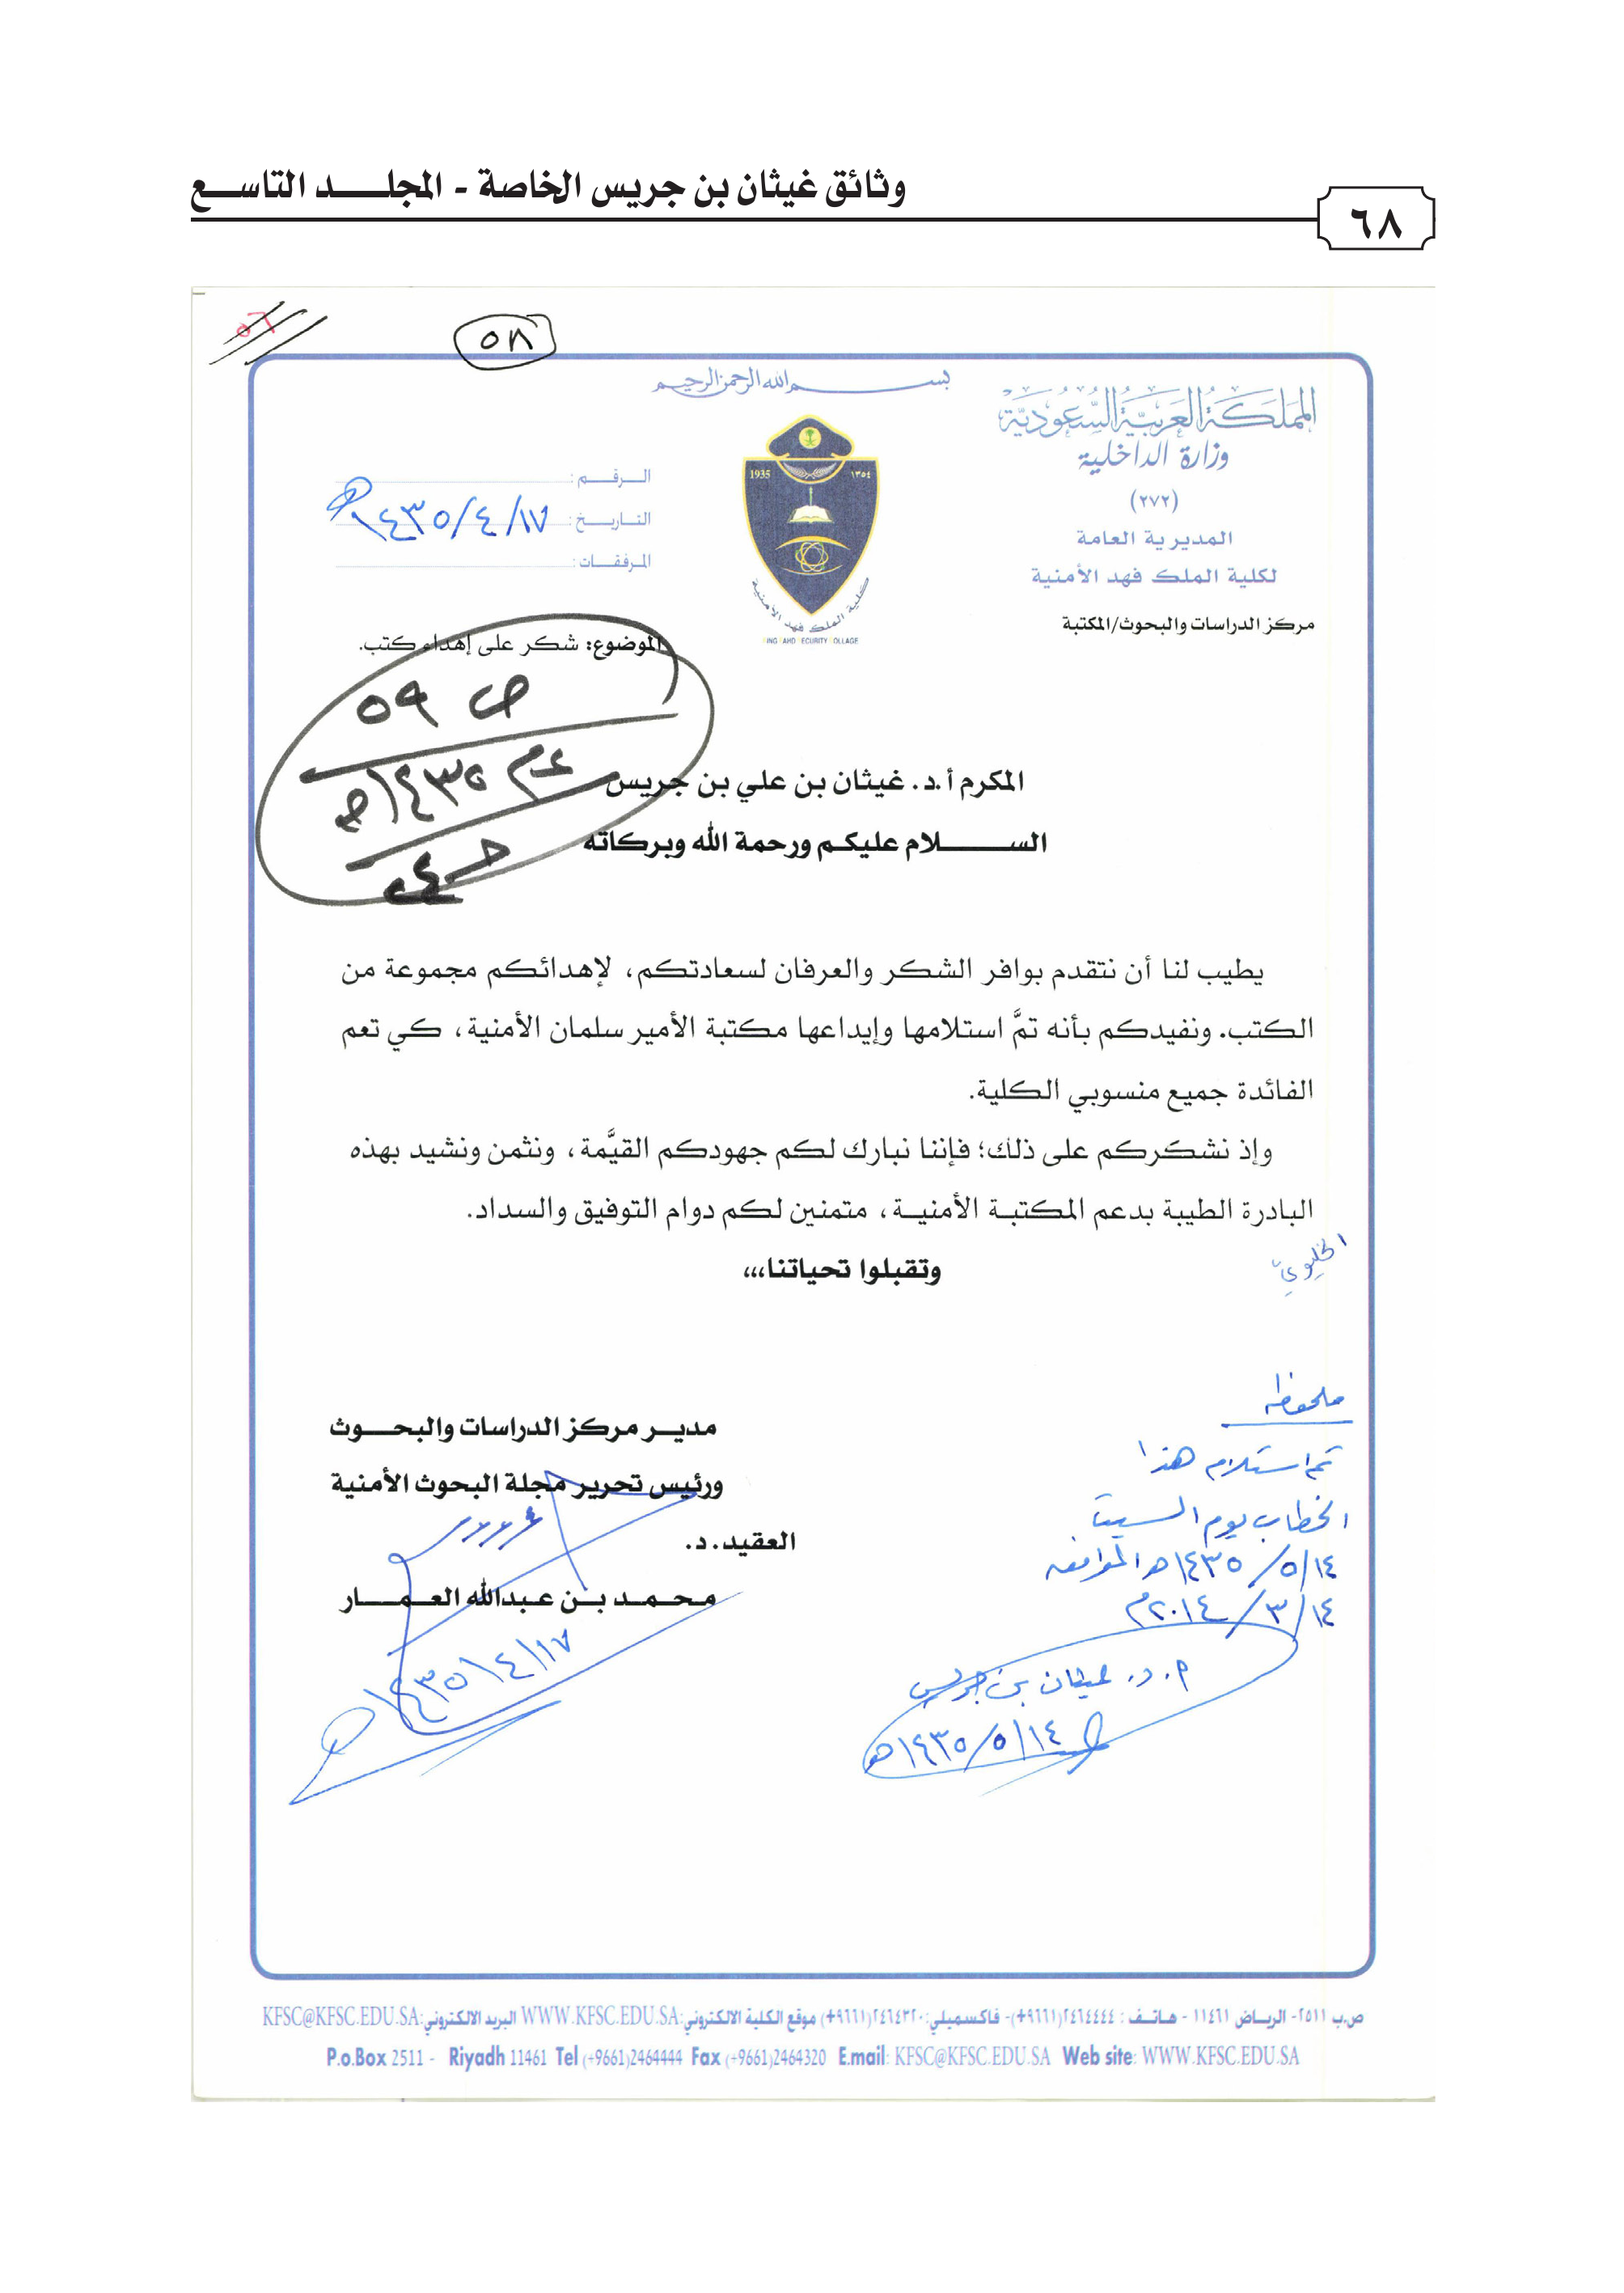 وثائق غيثان بن جريس الخاصة - المجلـــد التاســع
٦٨
٥٦
٥٨
بسم الله الرحمن الرحيم
المملكة العربية السعودية
وزارة الداخلية
(٢٧٢)
المديرية العامة
لكلية الملك فهد الأمنية
مركز الدراسات والبحوث/المكتبة
1935 ١٣٥٤
كلية الملك فهد الأمنية
ING AHD ECURITY OLLAGE
الـرقـم :
التاريـخ : ١٤٣٥/٤/١٧هـ
المرفقـات :
الموضوع: شكر على إهداء كتب.
ص ٥٩
عام ١٤٣٥هـ
المكرم أ.د. غيثان بن علي بن جريس
الســـــلام عليكم ورحمة الله وبركاته
يطيب لنا أن نتقدم بوافر الشكر والعرفان لسعادتكم، لإهدائكم مجموعة من
الكتب. ونفيدكم بأنه تمَّ استلامها وإيداعها مكتبة الأمير سلمان الأمنية، كي تعم
الفائدة جميع منسوبي الكلية.
وإذ نشكركم على ذلك؛ فإننا نبارك لكم جهودكم القيَّمة، ونثمن ونشيد بهذه
البادرة الطيبة بدعم المكتبـة الأمنيـة، متمنين لكم دوام التوفيق والسداد.
وتقبلوا تحياتنا،،،
مديــر مركز الدراسات والبحـــوث
ورئيس تحرير مجلة البحوث الأمنية
العقيد. د.
محـمـد بــن عـبدالله العـمــار
١٤٣٥/٤/١٧هـ
ملحوظة
تم استلام هذا
الخطاب يوم السبت
١٤٣٥/٥/١٤هـ الموافق
٢٠١٤/٣/١٤م
أ.د. غيثان بن جريس
١٤٣٥/٥/١٤هـ
ص.ب ٢٥١١- الريـاض ١١٤٦١ - هـاتـف : ٢٤٦٤٤٤٤(٩٦٦١+)- فاكسميلي:٢٤٦٤٣٢٠(٩٦٦١+) موقع الكلية الالكتروني:WWW.KFSC.EDU.SA البريد الالكتروني:KFSC@KFSC.EDU.SA
P.o.Box 2511 - Riyadh 11461 Tel (+9661)2464444 Fax (+9661)2464320 E.mail: KFSC@KFSC.EDU.SA Web site: WWW.KFSC.EDU.SA